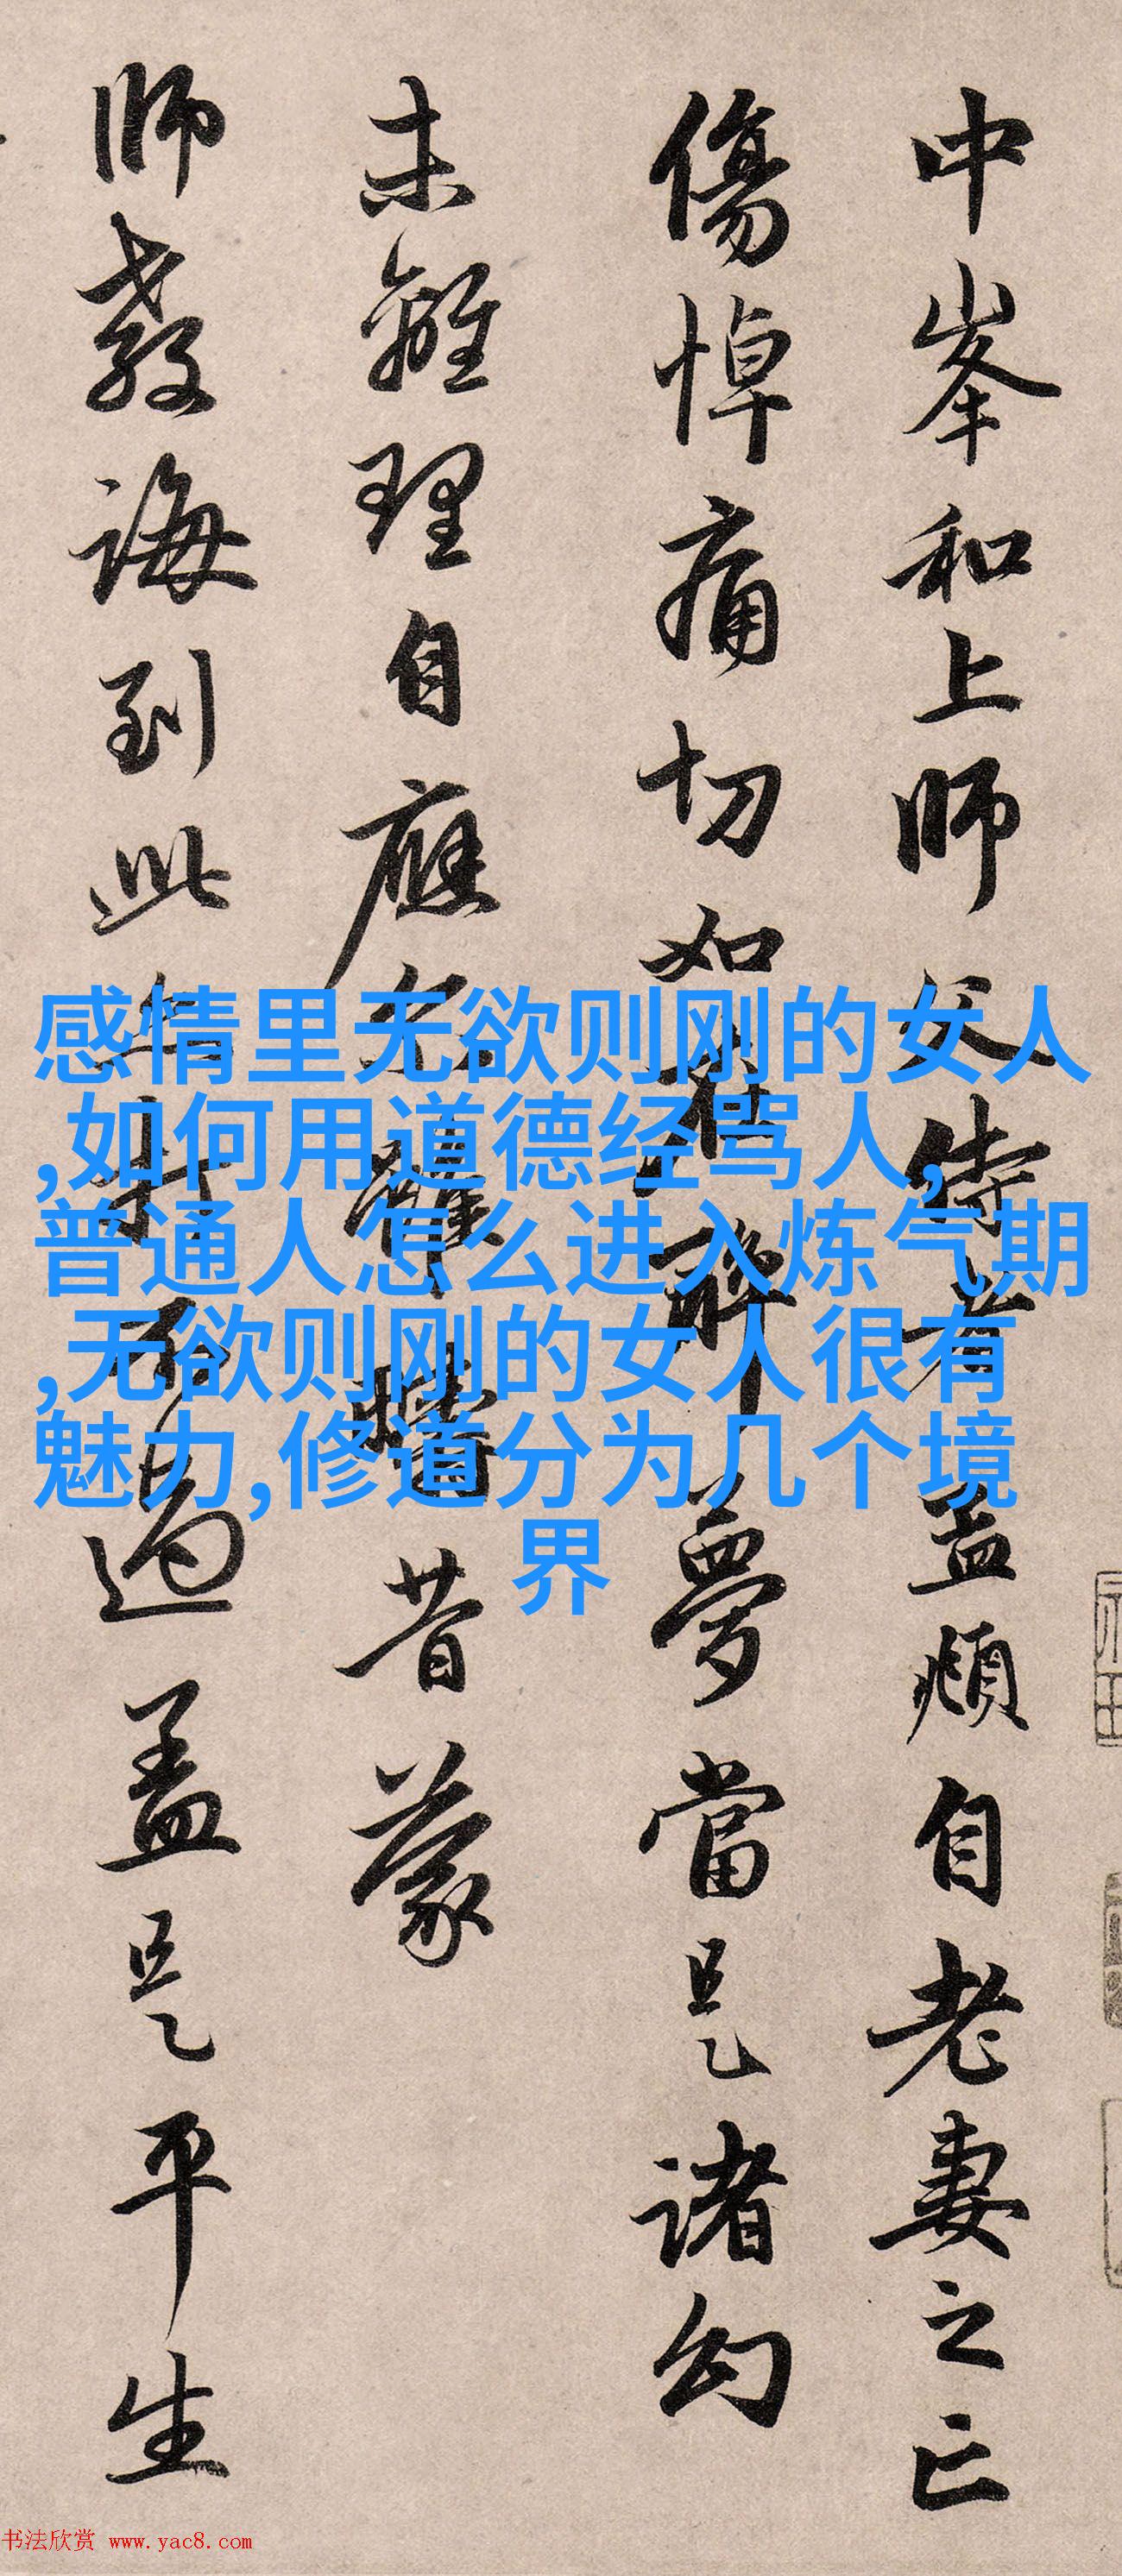 中峯和上師父侍者孟頫自老妻之亡
傷悼痛切如在醉夢當是諸幻
未離理自應尒雖疇昔蒙
師教誨到此打不過盖是平生
感情里无欲则刚的女人
,如何用道德经骂人,
普通人怎么进入炼气期
,无欲则刚的女人很有
魅力,修道分为几个境
界
书法欣赏 www.yac8.com